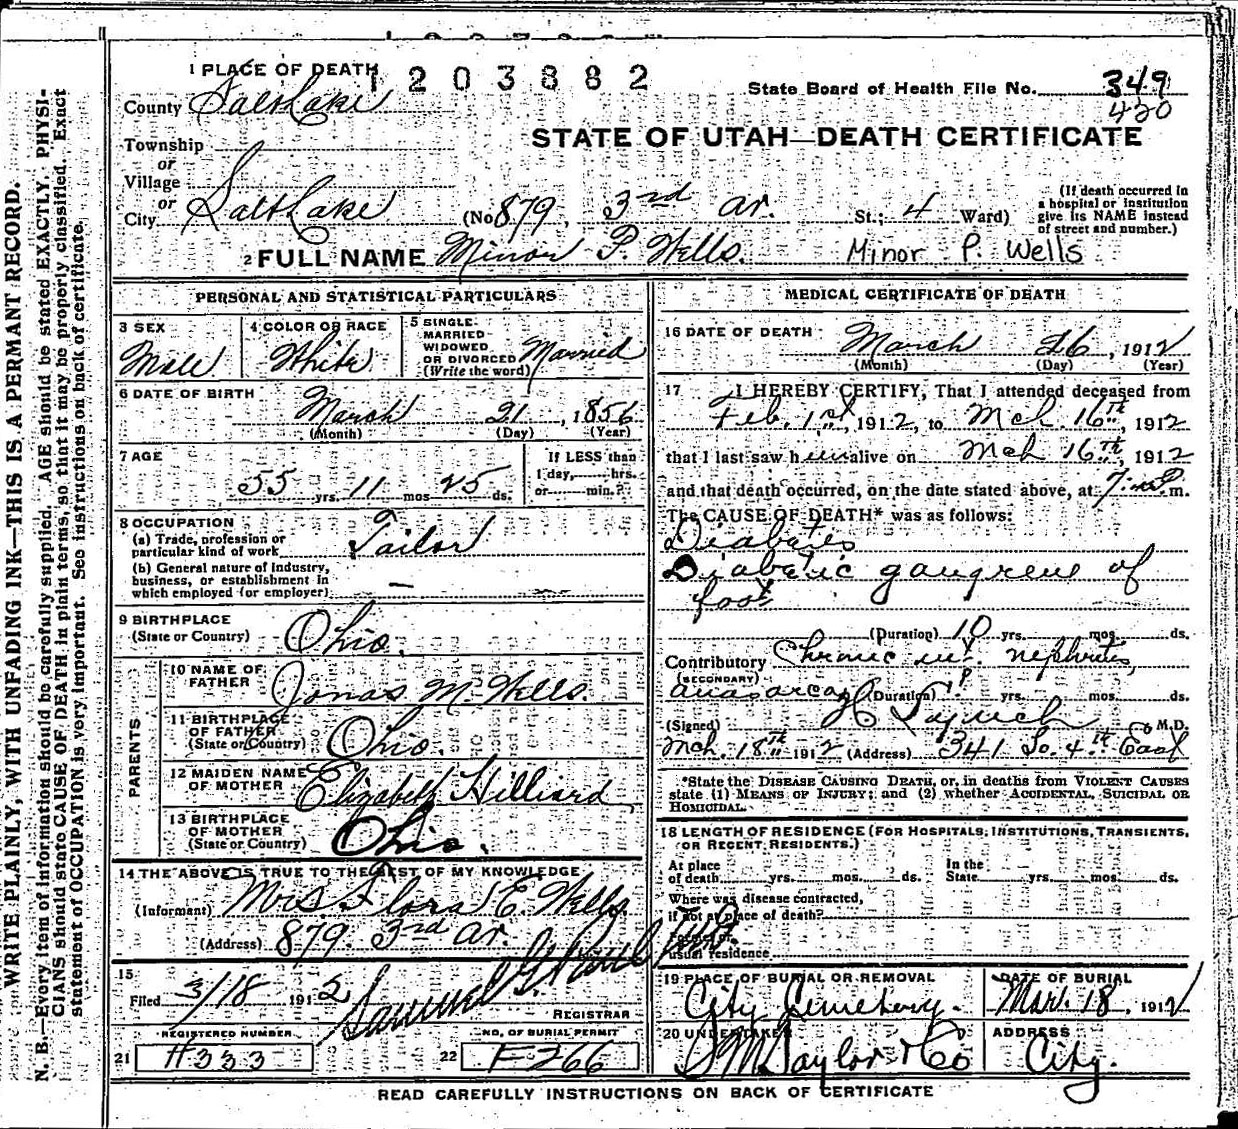 1 PLACE OF DEATH
1203882
State Board of Health File No. 349
430
County Salt Lake
STATE OF UTAH—DEATH CERTIFICATE
Township
or
Village
or
City Salt Lake (No 879. 3rd av. St.; 4 Ward)
(If death occurred in a hospital or institution give its NAME instead of street and number.)
2 FULL NAME Minor P. Wells. Minor P. Wells
PERSONAL AND STATISTICAL PARTICULARS
3 SEX Male
4 COLOR OR RACE White
5 SINGLE, MARRIED WIDOWED OR DIVORCED (Write the word) Married
6 DATE OF BIRTH March 21, 1856
(Month) (Day) (Year)
7 AGE 55 yrs. 11 mos 25 ds.
If LESS than 1 day, hrs. or min.?
8 OCCUPATION
(a) Trade, profession or particular kind of work Tailor
(b) General nature of industry, business, or establishment in which employed (or employer) —
9 BIRTHPLACE (State or Country) Ohio.
PARENTS
10 NAME OF FATHER Jonas M. Wells.
11 BIRTHPLACE OF FATHER (State or Country) Ohio.
12 MAIDEN NAME OF MOTHER Elizabeth Hilliard
13 BIRTHPLACE OF MOTHER (State or Country) Ohio.
14 THE ABOVE IS TRUE TO THE BEST OF MY KNOWLEDGE
(Informant) Mrs. Flora E. Wells.
(Address) 879. 3rd av.
15
Filed 3/18 1912 Samuel G.
REGISTRAR
REGISTERED NUMBER
21 H333
NO. OF BURIAL PERMIT
22 F266
MEDICAL CERTIFICATE OF DEATH
16 DATE OF DEATH March 16, 1912
(Month) (Day) (Year)
17 I HEREBY CERTIFY, That I attended deceased from
Feb. 1st, 1912, to Mch. 16th, 1912
that I last saw him alive on Mch 16th, 1912
and that death occurred, on the date stated above, at m.
The CAUSE OF DEATH* was as follows:
Diabetes
Diabetic gangrene of
foot
(Duration) 10 yrs. mos. ds.
Contributory Chronic int. nephritis,
(SECONDARY)
anasarca (Duration) ? yrs. mos. ds.
(Signed) M.D.
Mch. 18th 1912 (Address) 341 So. 4th East
*State the DISEASE CAUSING DEATH, or, in deaths from VIOLENT CAUSES
state (1) MEANS OF INJURY; and (2) whether ACCIDENTAL, SUICIDAL OR
HOMICIDAL.
18 LENGTH OF RESIDENCE (FOR HOSPITALS, INSTITUTIONS, TRANSIENTS,
OR RECENT RESIDENTS.)
At place of death yrs. mos. ds. In the State yrs. mos. ds.
Where was disease contracted,
if not at place of death?
Former or
usual residence
19 PLACE OF BURIAL OR REMOVAL City Cemetery.
DATE OF BURIAL Mar. 18, 1912
20 UNDERTAKER S M Taylor & Co
ADDRESS City.
READ CAREFULLY INSTRUCTIONS ON BACK OF CERTIFICATE
WRITE PLAINLY, WITH UNFADING INK—THIS IS A PERMANT RECORD.
N. B.—Every item of information should be carefully supplied. AGE should be stated EXACTLY. PHYSI-
CIANS should state CAUSE OF DEATH in plain terms, so that it may be properly classified. Exact
statement of OCCUPATION is very important. See instructions on back of certificate.